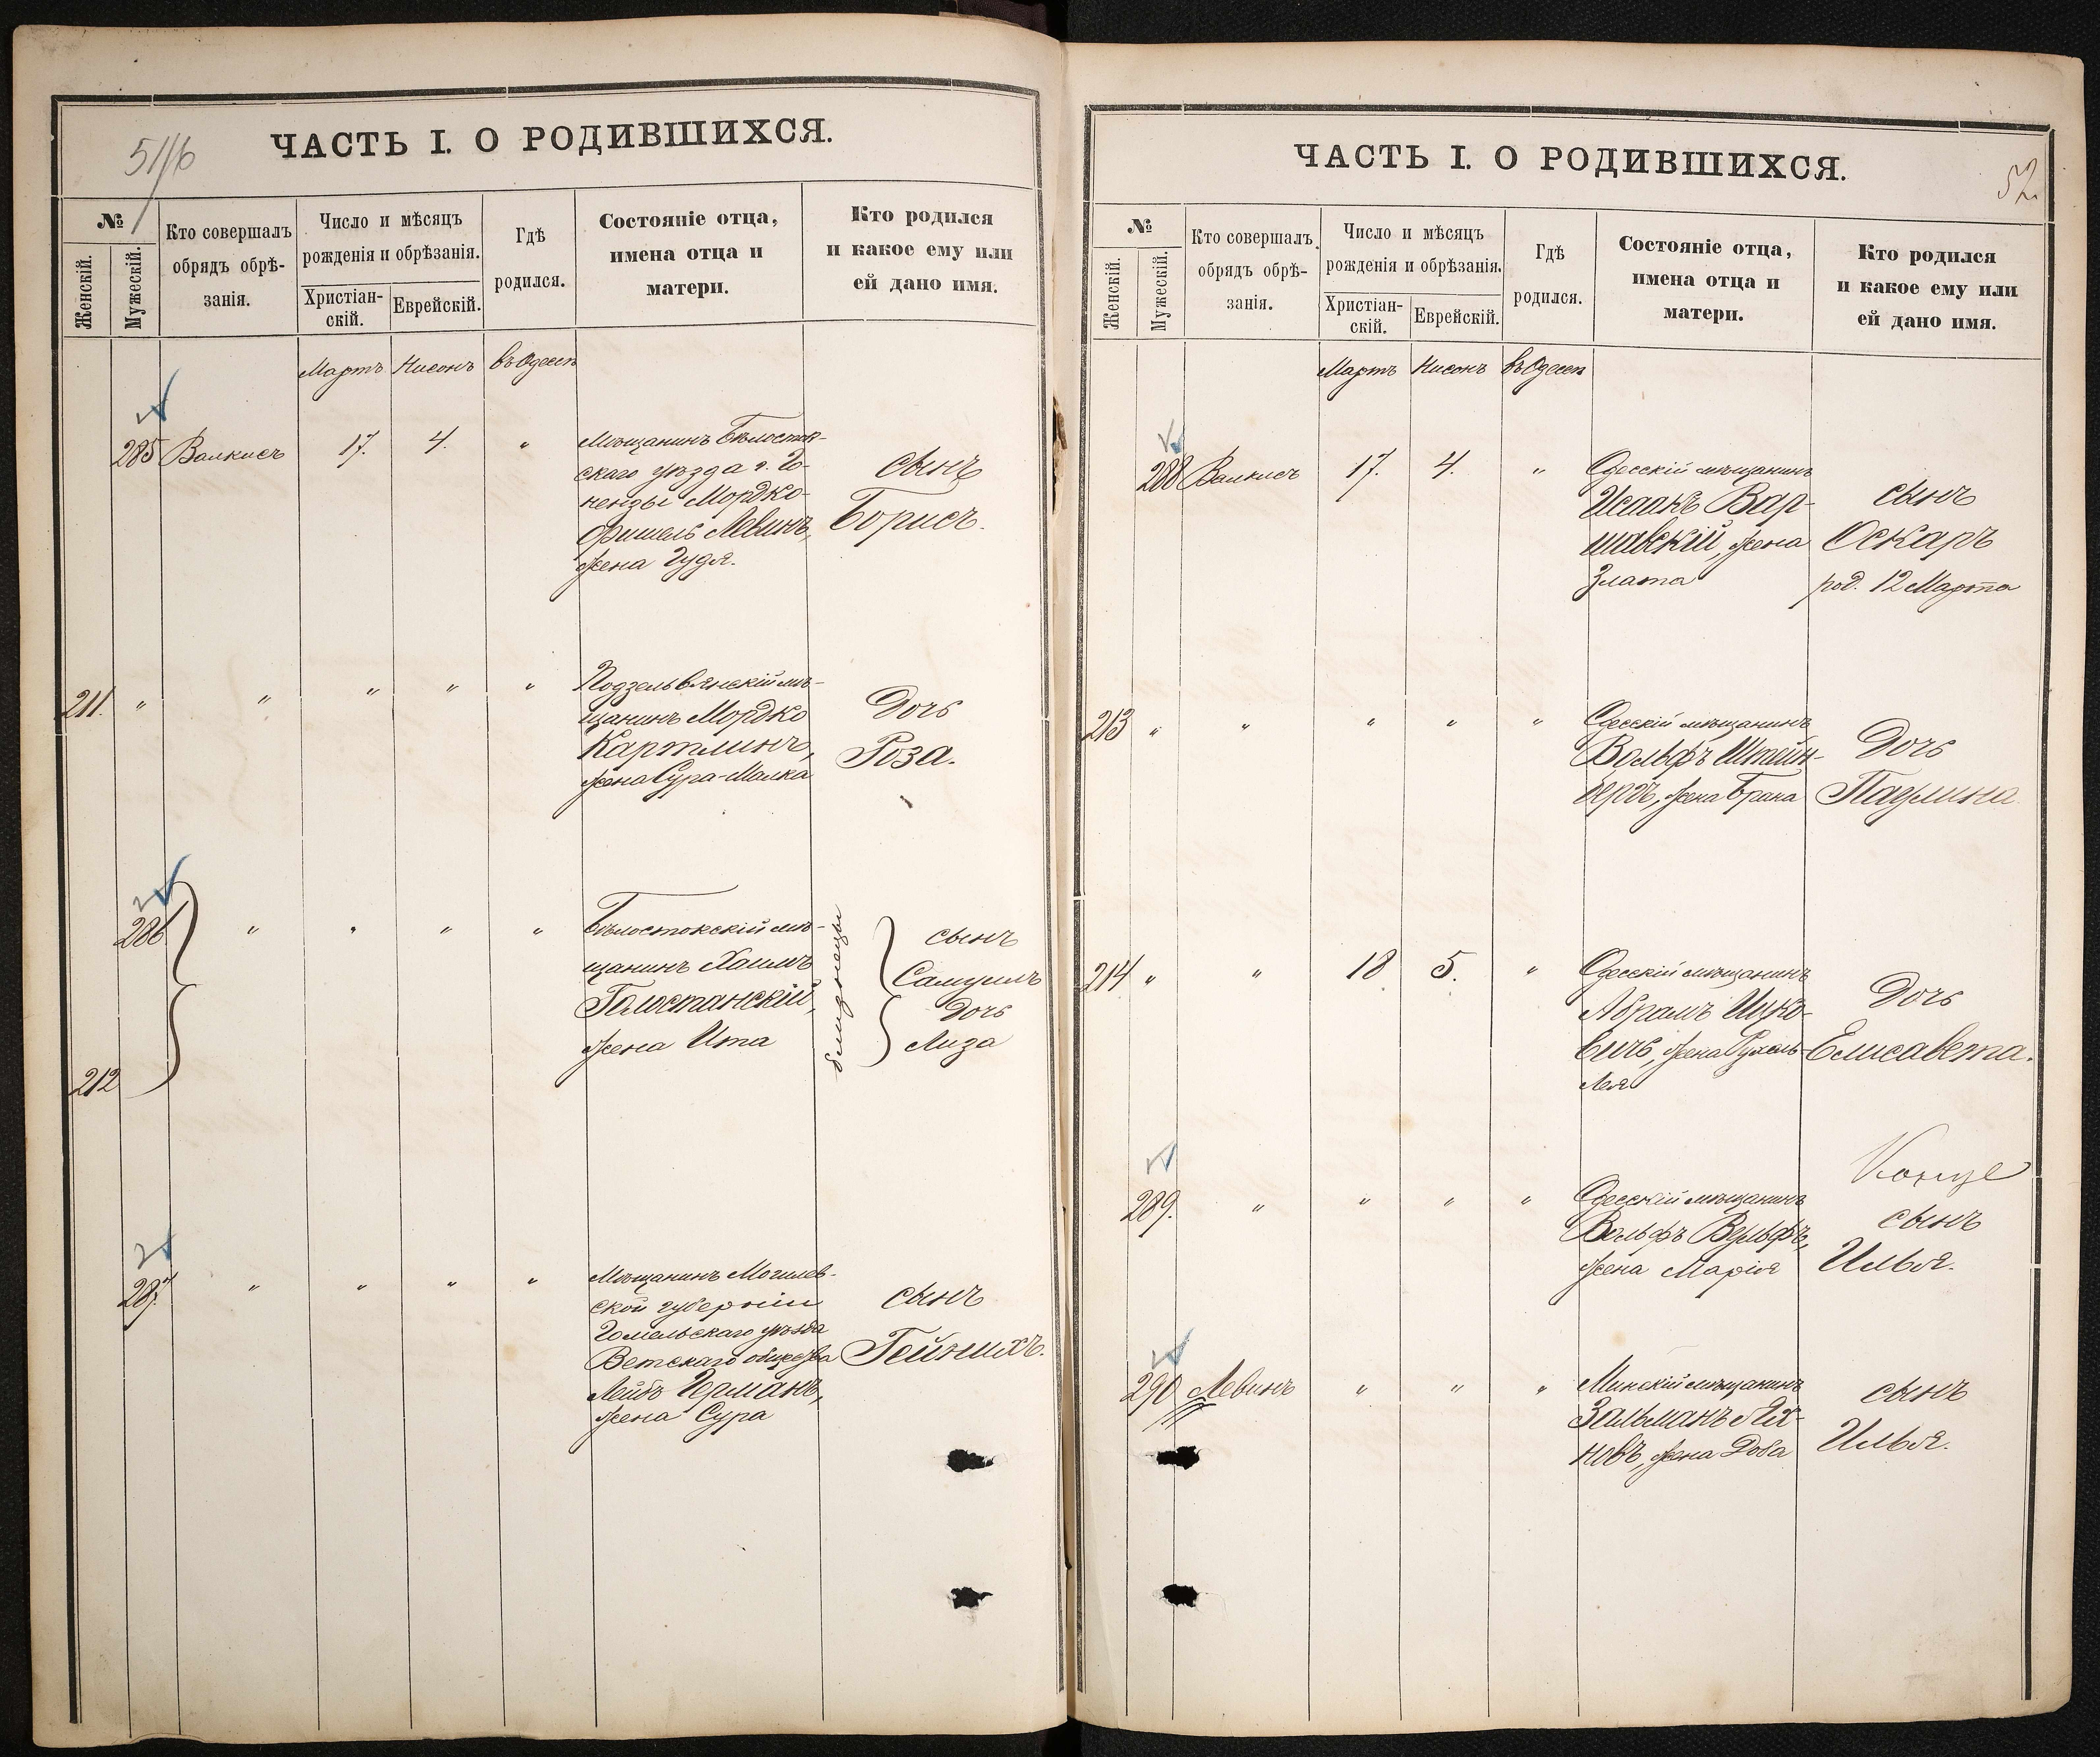 51/б
ЧАСТЬ I. О РОДИВШИХСЯ.
№
Женскій.
Мужескій.
Кто совершалъ
обрядъ обрѣ-
занія.
Число и мѣсяцъ
рожденія и обрѣзанія.
Христіан-
скій.
Еврейскій.
Гдѣ
родился.
Состояніе отца,
имена отца и
матери.
Кто родился
и какое ему или
ей дано имя.
Мартъ Нисонъ въ Одессѣ
285 Валкисъ 17. 4. "
Мѣщанинъ Бѣлосток-
скаго уѣзда г. Го-
нендзы Мордко-
Фишель Левинъ,
жена Гудя.
сынъ
Борисъ.
211. " " " " "
Подзельвянскій мѣ-
щанинъ Мордко
Картлинъ,
жена Сура-Малка
Дочь
Роза.
286 " " " "
Бѣлостокскій мѣ-
щанинъ Хаимъ
Голостанскій,
жена Ита
близнецы
сынъ
Самуилъ
Дочь
Лиза
212
287. " " " "
Мѣщанинъ Могилев-
ской губерніи
Гомельскаго уѣзда
Ветскаго общества
Лейбъ Германъ,
жена Сура
сынъ
Гейнихъ.
52.
ЧАСТЬ I. О РОДИВШИХСЯ.
№
Женскій.
Мужескій.
Кто совершалъ
обрядъ обрѣ-
занія.
Число и мѣсяцъ
рожденія и обрѣзанія.
Христіан-
скій.
Еврейскій.
Гдѣ
родился.
Состояніе отца,
имена отца и
матери.
Кто родился
и какое ему или
ей дано имя.
Мартъ Нисонъ въ Одессѣ
288 Валкисъ 17. 4. "
Одесскій мѣщанинъ
Исаакъ Вар-
шавскій, жена
Злата
сынъ
Оскаръ
род. 12 Марта
213 " " " " "
Одесскій мѣщанинъ
Вольфъ Штейн-
бергъ, жена Брана
Дочь
Паулина
214 " " 18 5. "
Одесскій мѣщанинъ
Абрамъ Ицко-
вичъ, жена Рухель-
Лея
Дочь
Елисавета.
289. " " " "
Одесскій мѣщанинъ
Вольфъ Вульфъ,
жена Марія
сынъ
Илья.
290 Левинъ " " "
Минскій мѣщанинъ
Зальманъ Ях-
новъ, жена Доба
сынъ
Илья.